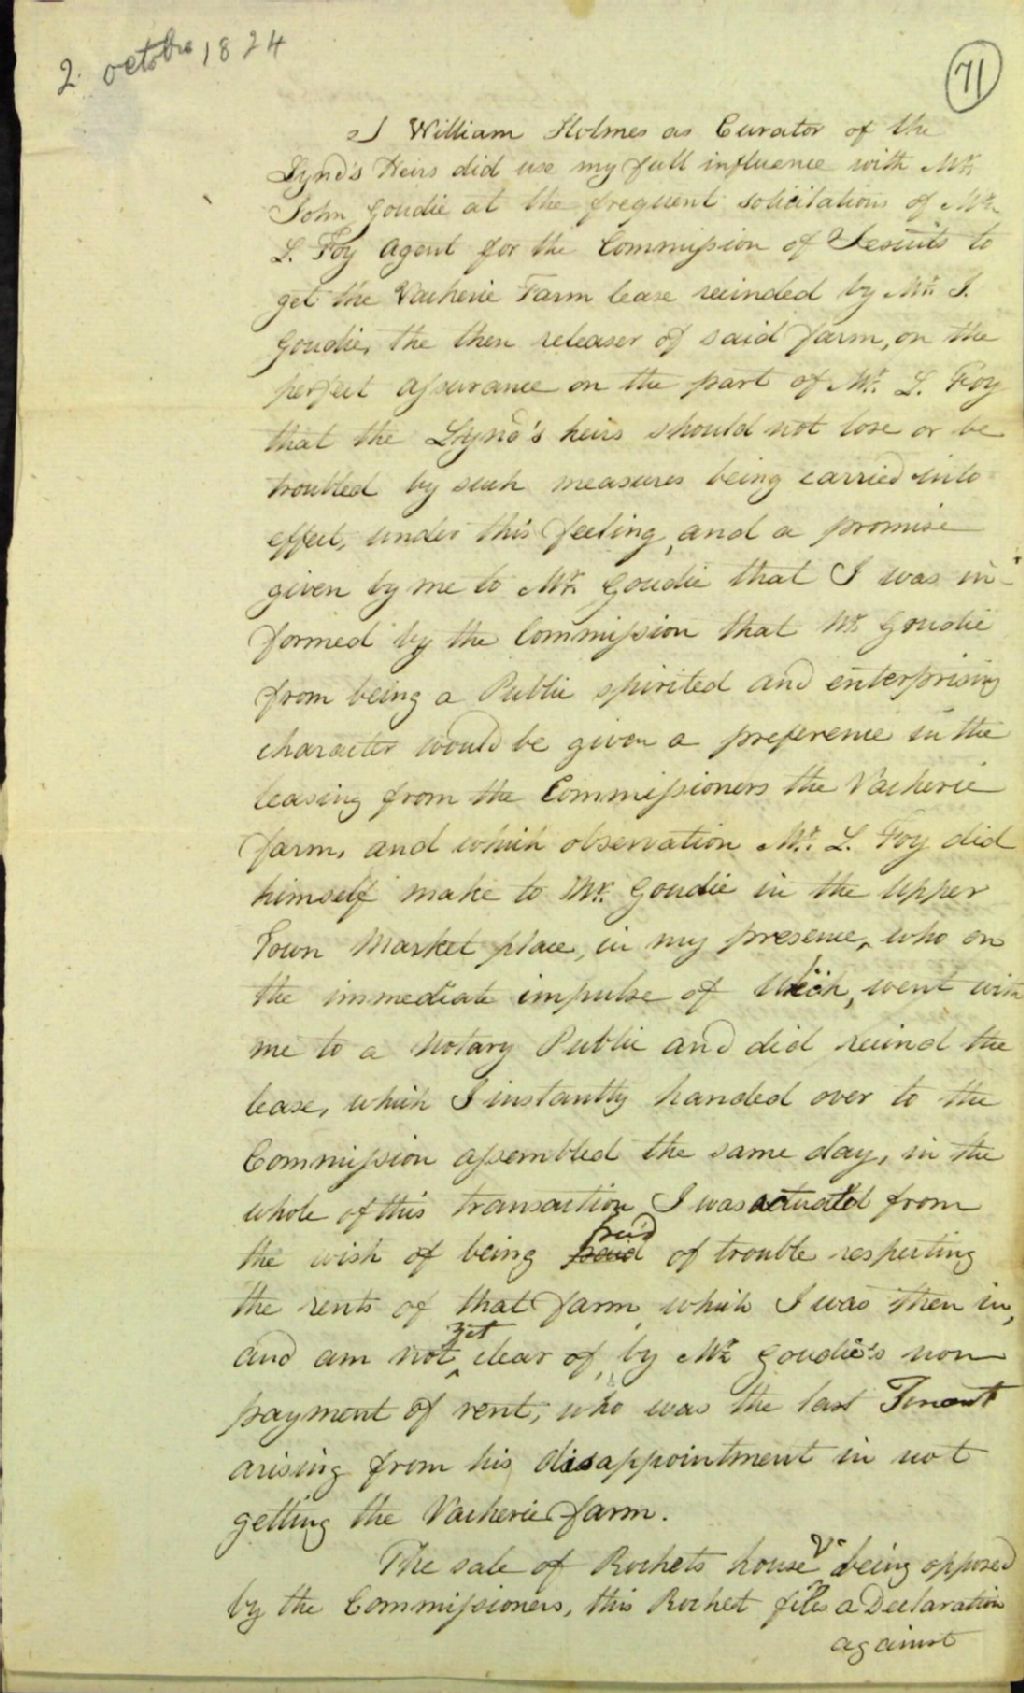 2. octobre 1824
71
I William Holmes as Curator of the
Lynd's Heirs did use my full influence with Mr.
John Goudie at the frequent solicitations of Mr.
L. Foy Agent for the Commission of Jesuits to
get the Vacherie Farm lease recinded by Mr. J.
Goudie, the then releaser of said farm, on the
perfect assurance on the part of Mr. L. Foy
that the Lynd's heirs should not lose or be
troubled by such measures being carried into
effect, under this feeling, and a promise
given by me to Mr. Goudie that I was in-
formed by the Commission that Mr. Goudie
from being a Public spirited and enterprising
character would be given a preference in the
leasing from the Commissioners the Vacherie
farm, and which observation Mr. L. Foy did
himself make to Mr. Goudie in the Upper
Town Market place, in my presence, who on
the immediate impulse of which, went with
me to a Notary Public and did recind the
lease, which I instantly handed over to the
Commission assembled the same day, in the
whole of this transaction I was actuated from
the wish of being freed of trouble respecting
the rents of that farm, which I was then in,
and am not yet clear of, by Mr. Goudie's non
payment of rent, who was the last Tenant
arising from his disappointment in not
getting the Vacherie farm.
The sale of Rochets house being opposed
by the Commissioners, this Rochet files a Declaration
against